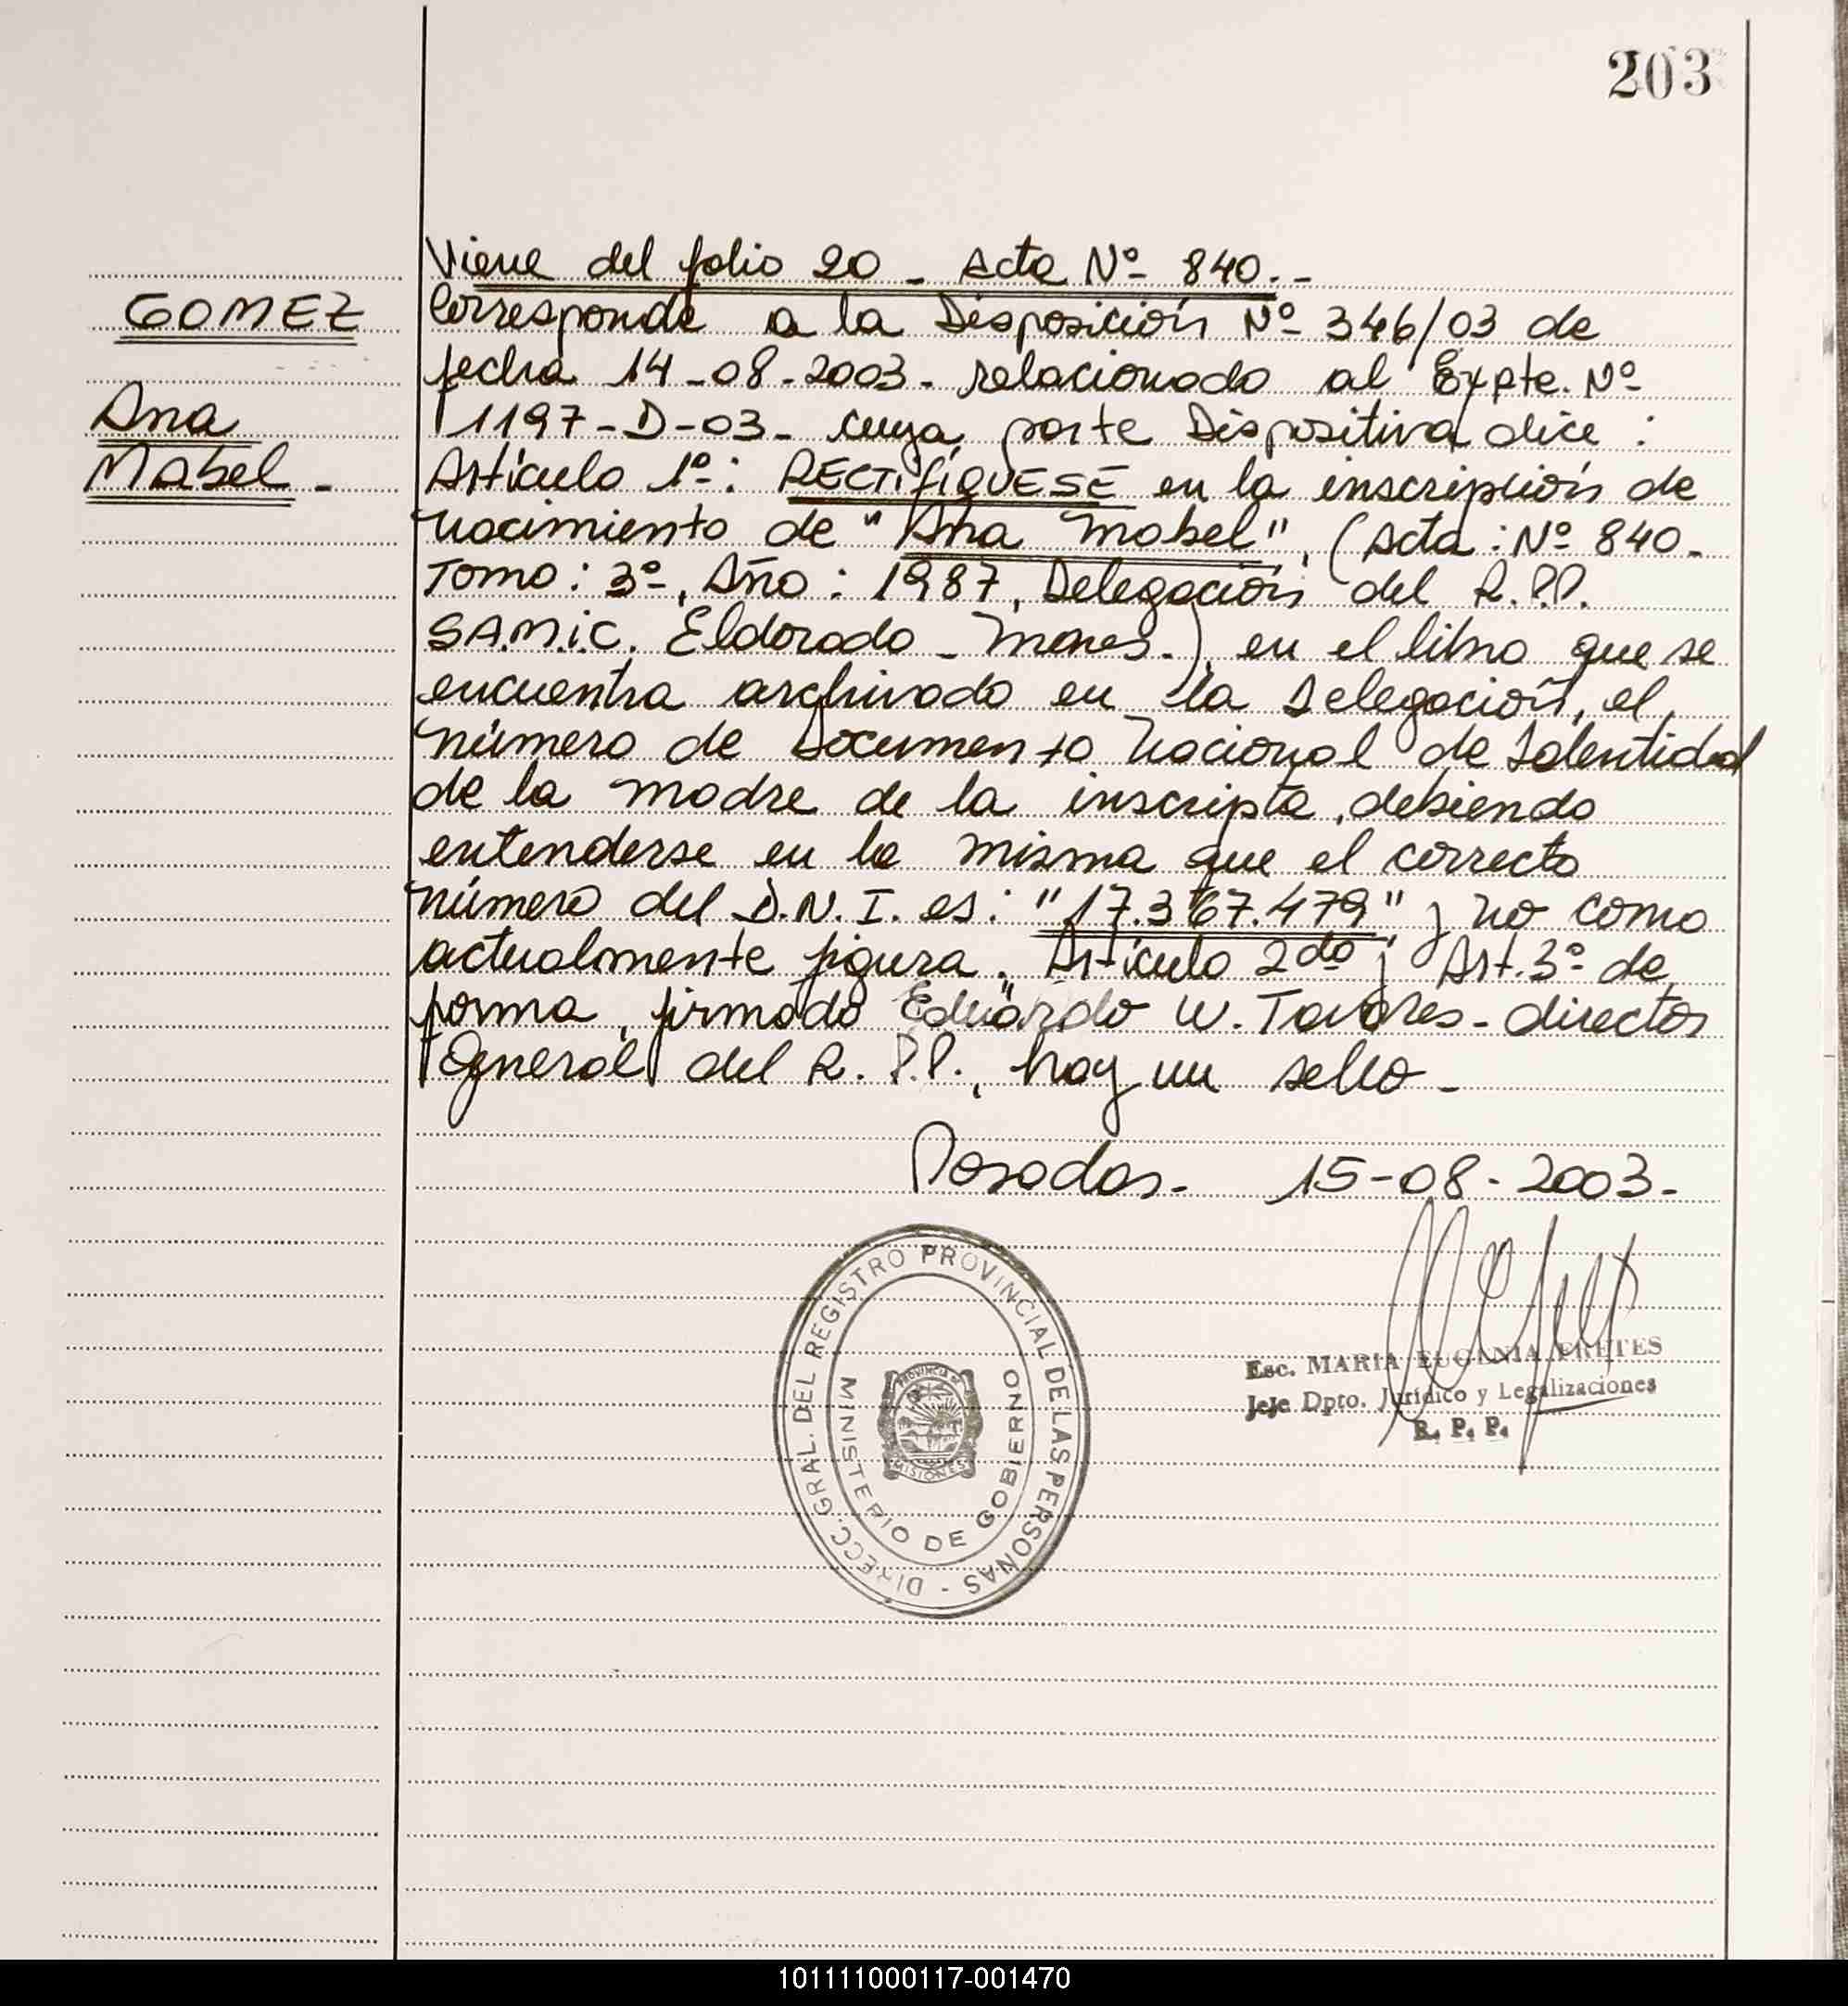 203
Viene del folio 20 - Acta Nº 840.-
GOMEZ
Corresponde a la Disposición Nº 346/03 de
fecha 14-08-2003- relacionado al Expte. Nº
Ana
1197-D-03- cuya parte Dispositiva dice:
Mabel-
Artículo 1º: RECTIFIQUESE en la inscripción de
nacimiento de "Ana Mabel", (Acta: Nº 840-
Tomo: 3º, Año: 1987, Delegación del R.P.P.
S.A.M.i.C. Eldorado - Mnes.), en el libro que se
encuentra archivado en la Delegación, el
número de Documento Nacional de Identidad
de la madre de la inscripta, debiendo
entenderse en la misma que el correcto
número del D.N.I. es: "17.367.479" y no como
actualmente figura. Artículo 2do; Art. 3º de
forma, firmado Eduardo W. Tavares- director
General del R.P.P., hay un sello-
Posadas- 15-08-2003-
DIRECC. GRAL. DEL REGISTRO PROVINCIAL DE LAS PERSONAS -
MINISTERIO DE GOBIERNO
PROVINCIA DE
MISIONES
Esc. MARIA EUGENIA
Jefe Dpto. Jurídico y Legalizaciones
R. P. P.
101111000117-001470